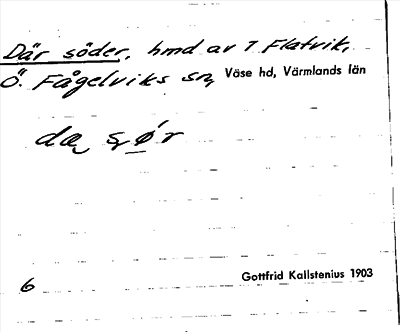 Där söder, hmd av T Flatvik,
Ö. Fågelviks sn, Väse hd, Värmlands län
dæ sør
6 Gottfrid Kallstenius 1903